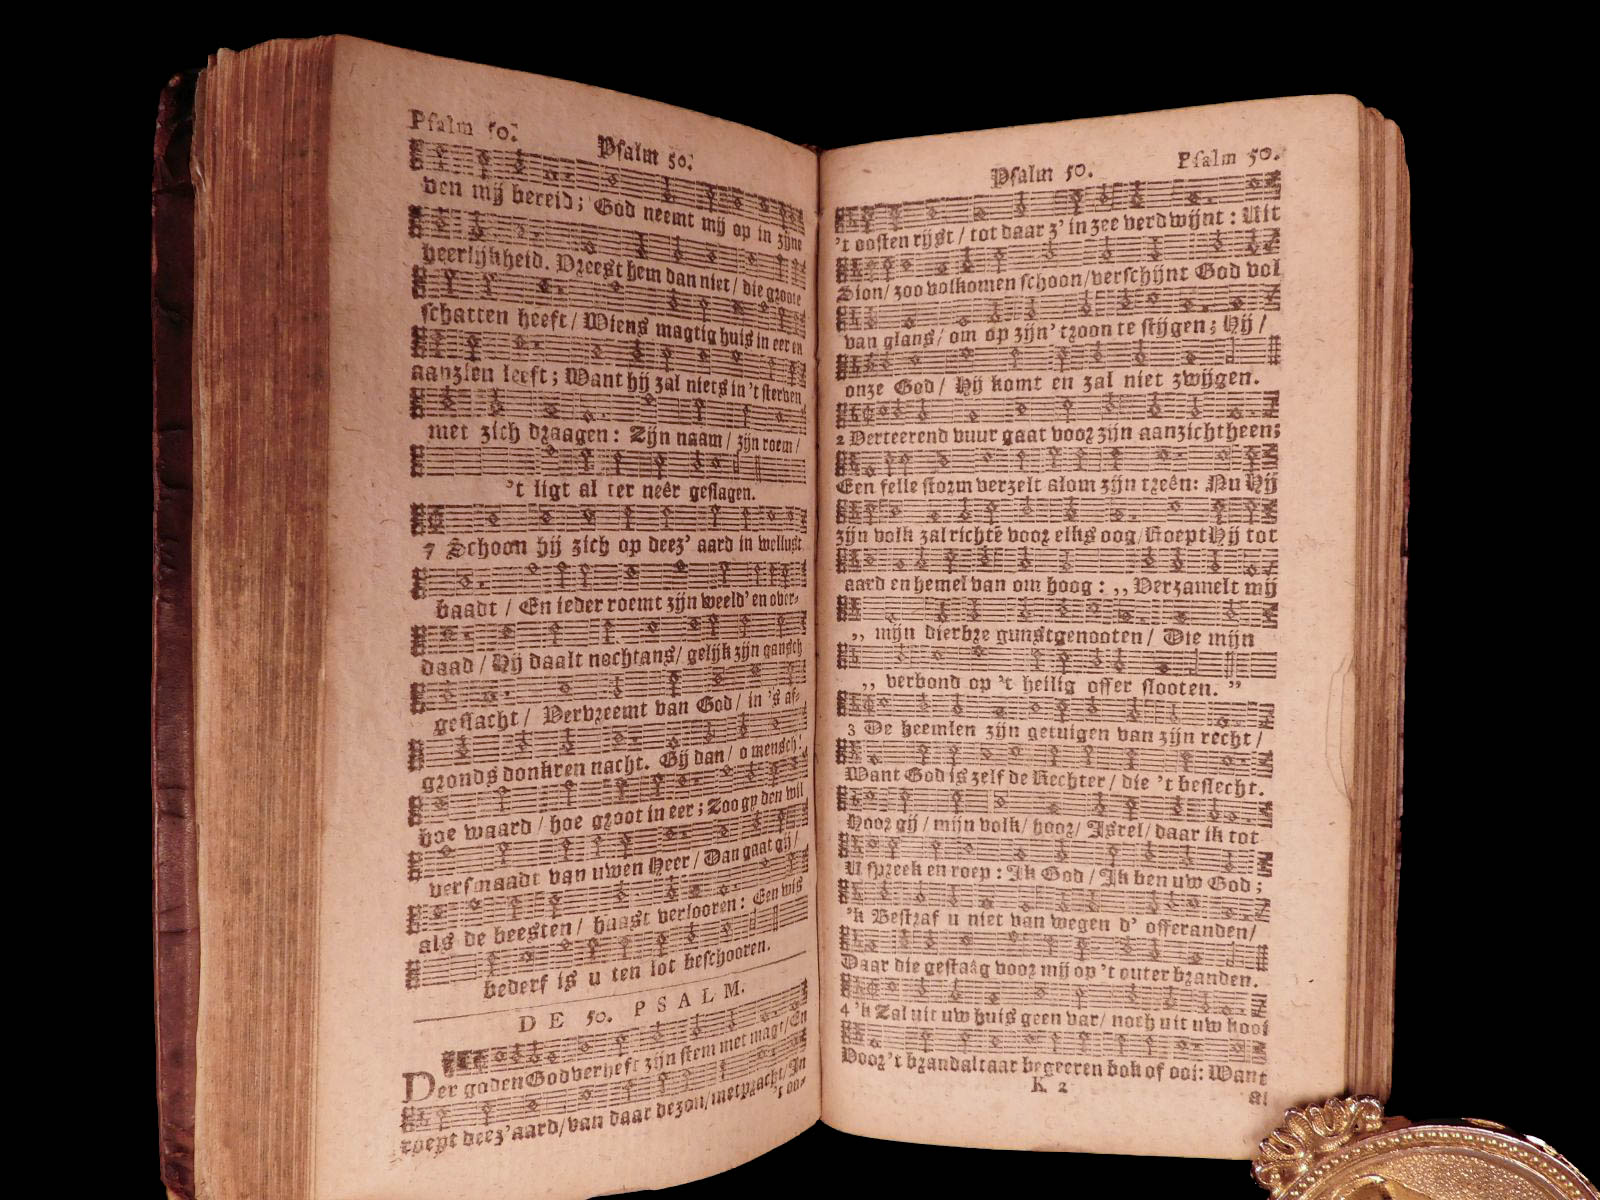 Psalm 50.
Psalm 50.
ven mij bereid; God neemt mij op in zijne
heerlijkheid. Vreest hem dan niet / die groote
schatten heeft / Wiens magtig huis in eer en
aanzien leeft; Want hij zal niets in 't sterven
met zich draagen: Zijn naam / zijn roem /
't ligt al ter neêr geslagen.
7 Schoon hij zich op deez' aard in wellust
baadt / En ieder roemt zijn weeld' en over-
daad / Hij daalt nochtans / gelijk zijn gansch
geslacht / Vervreemt van God / in 's af-
gronds donkren nacht. Gij dan / o mensch!
hoe waard / hoe groot in eer; Zoo gy den wil
versmaadt van uwen Heer / Dan gaat gij /
als de beesten / haast verlooren: Een wis
bederf is u ten lot beschooren.
DE 50. PSALM.
Der goden God verheft zijn stem met magt / En
roept deez' aard / van daar de zon / met pracht / In
't oo-
Psalm 50.
Psalm 50.
't oosten rijst / tot daar z' in zee verdwijnt: Uit
Sion / zoo volkomen schoon / verschijnt God vol
van glans / om op zijn' troon te stijgen; Hij /
onze God / Hij komt en zal niet zwijgen.
2 Verteerend vuur gaat voor zijn aanzicht heen;
Een felle storm verzelt alom zijn treên: Nu Hij
zijn volk zal richtē voor elks oog / Roept Hij tot
aard en hemel van om hoog: ,, Verzamelt mij
,, mijn dierbre gunstgenooten / Die mijn
,, verbond op 't heilig offer slooten. ”
3 De heemlen zijn getuigen van zijn recht /
Want God is zelf de Rechter / die 't beslecht.
Hoor gij / mijn volk / hoor / Isrel / daar ik tot
U spreek en roep: Ik God / Ik ben uw God;
'k Bestraf u niet van wegen d' offeranden /
Daar die gestaâg voor mij op 't outer branden.
4 'k Zal uit uw huis geen var / noch uit uw kooi
Voor 't brandaltaar begeeren bok of ooi: Want
K 2
al